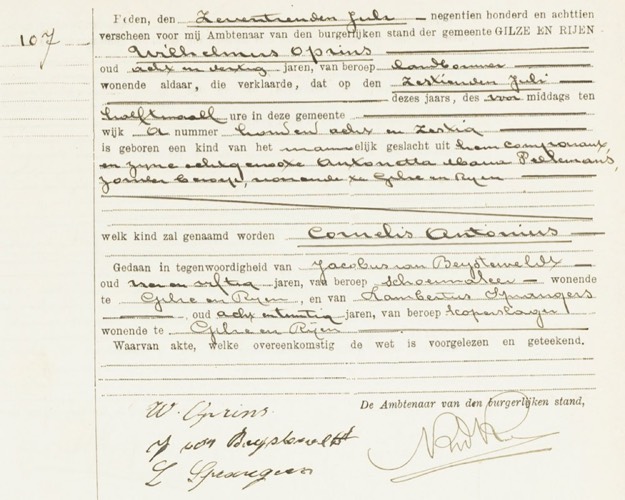 107
Heden, den Zeventienden Juli negentien honderd en achttien
verscheen voor mij Ambtenaar van den burgerlijken stand der gemeente GILZE EN RIJEN
Wilhelmus Oprins
oud acht en dertig jaren, van beroep landbouwer
wonende aldaar, die verklaarde, dat op den Zestienden Juli
dezes jaars, des voor middags ten
half ure in deze gemeente
wijk A nummer honderd acht en zestig
is geboren een kind van het mannelijk geslacht uit hem comparant,
en zijne echtgenoote Antonetta Maria Peelemans,
zonder beroep, wonende te Gilze en Rijen
welk kind zal genaamd worden Cornelis Antonius
Gedaan in tegenwoordigheid van Jacobus van Beijsteveldt
oud vijftig jaren, van beroep schoenmaker wonende
te Gilze en Rijen, en van Lambertus Sprangers
, oud acht en twintig jaren, van beroep
wonende te Gilze en Rijen
Waarvan akte, welke overeenkomstig de wet is voorgelezen en geteekend.
De Ambtenaar van den burgerlijken stand,
W. Oprins
J van Beijsteveldt
L Sprangers